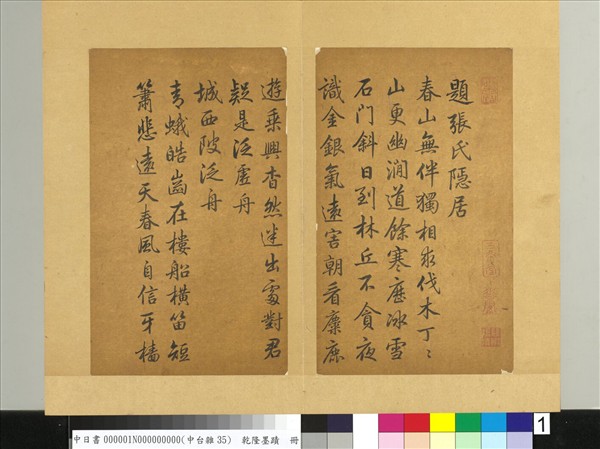 題張氏隱居
春山無伴獨相求伐木丁〻
山更幽澗道餘寒歷冰雪
石門斜日到林丘不貪夜
識金銀氣遠害朝看麋鹿
遊乘興杳然迷出處對君
疑是泛虛舟
城西陂泛舟
青蛾皓齒在樓船橫笛短
簫悲遠天春風自信牙檣
中日書 000001N000000000(中台雜 35) 乾隆墨蹟 冊
1